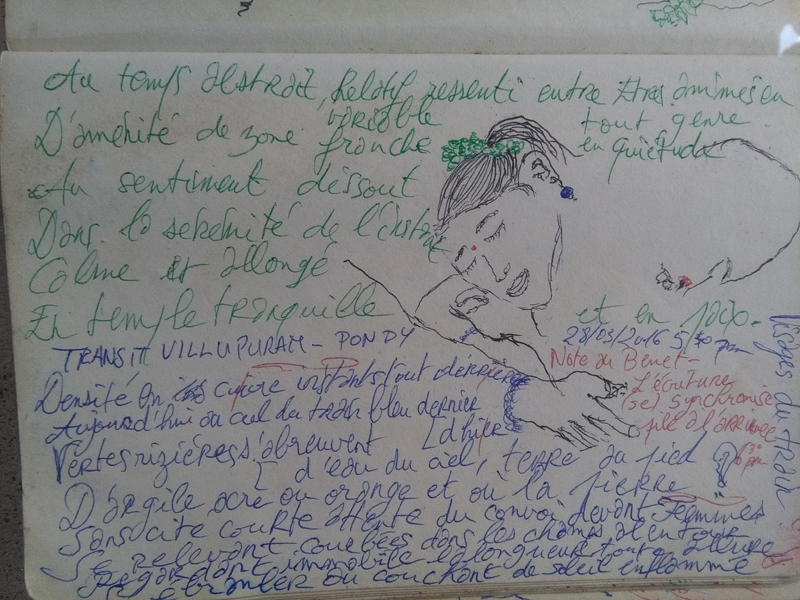 Au temps abstrait, Relatif, ressenti entre êtres animés en
variable tout genre
D'aménité de zone franche en quiétude
Au sentiment dissout
Dans la sérénité de l'instant
Calme et allongé
En temple tranquille et en paix.
TRANSIT VILLUPURAM - PONDY 28/03/2016 5 30 pm
Visages du train
Note au Benet-
L'écriture
(se) synchronise
pile à l'arrivée
Densité en cuivre instants tout derrière
Aujourd'hui au ciel du train bleu dernier
[d'hier
Vertes rizières s'abreuvent
[d'eau du ciel, terre au pied
D'argile ocre ou orange et où la pierre
Sans cite courte attente du convoi devant Femmes
Se relevant courbées dans les champs alentour
Regardant immobile la longueur toute
S'ébranler au couchant de soleil enflammé